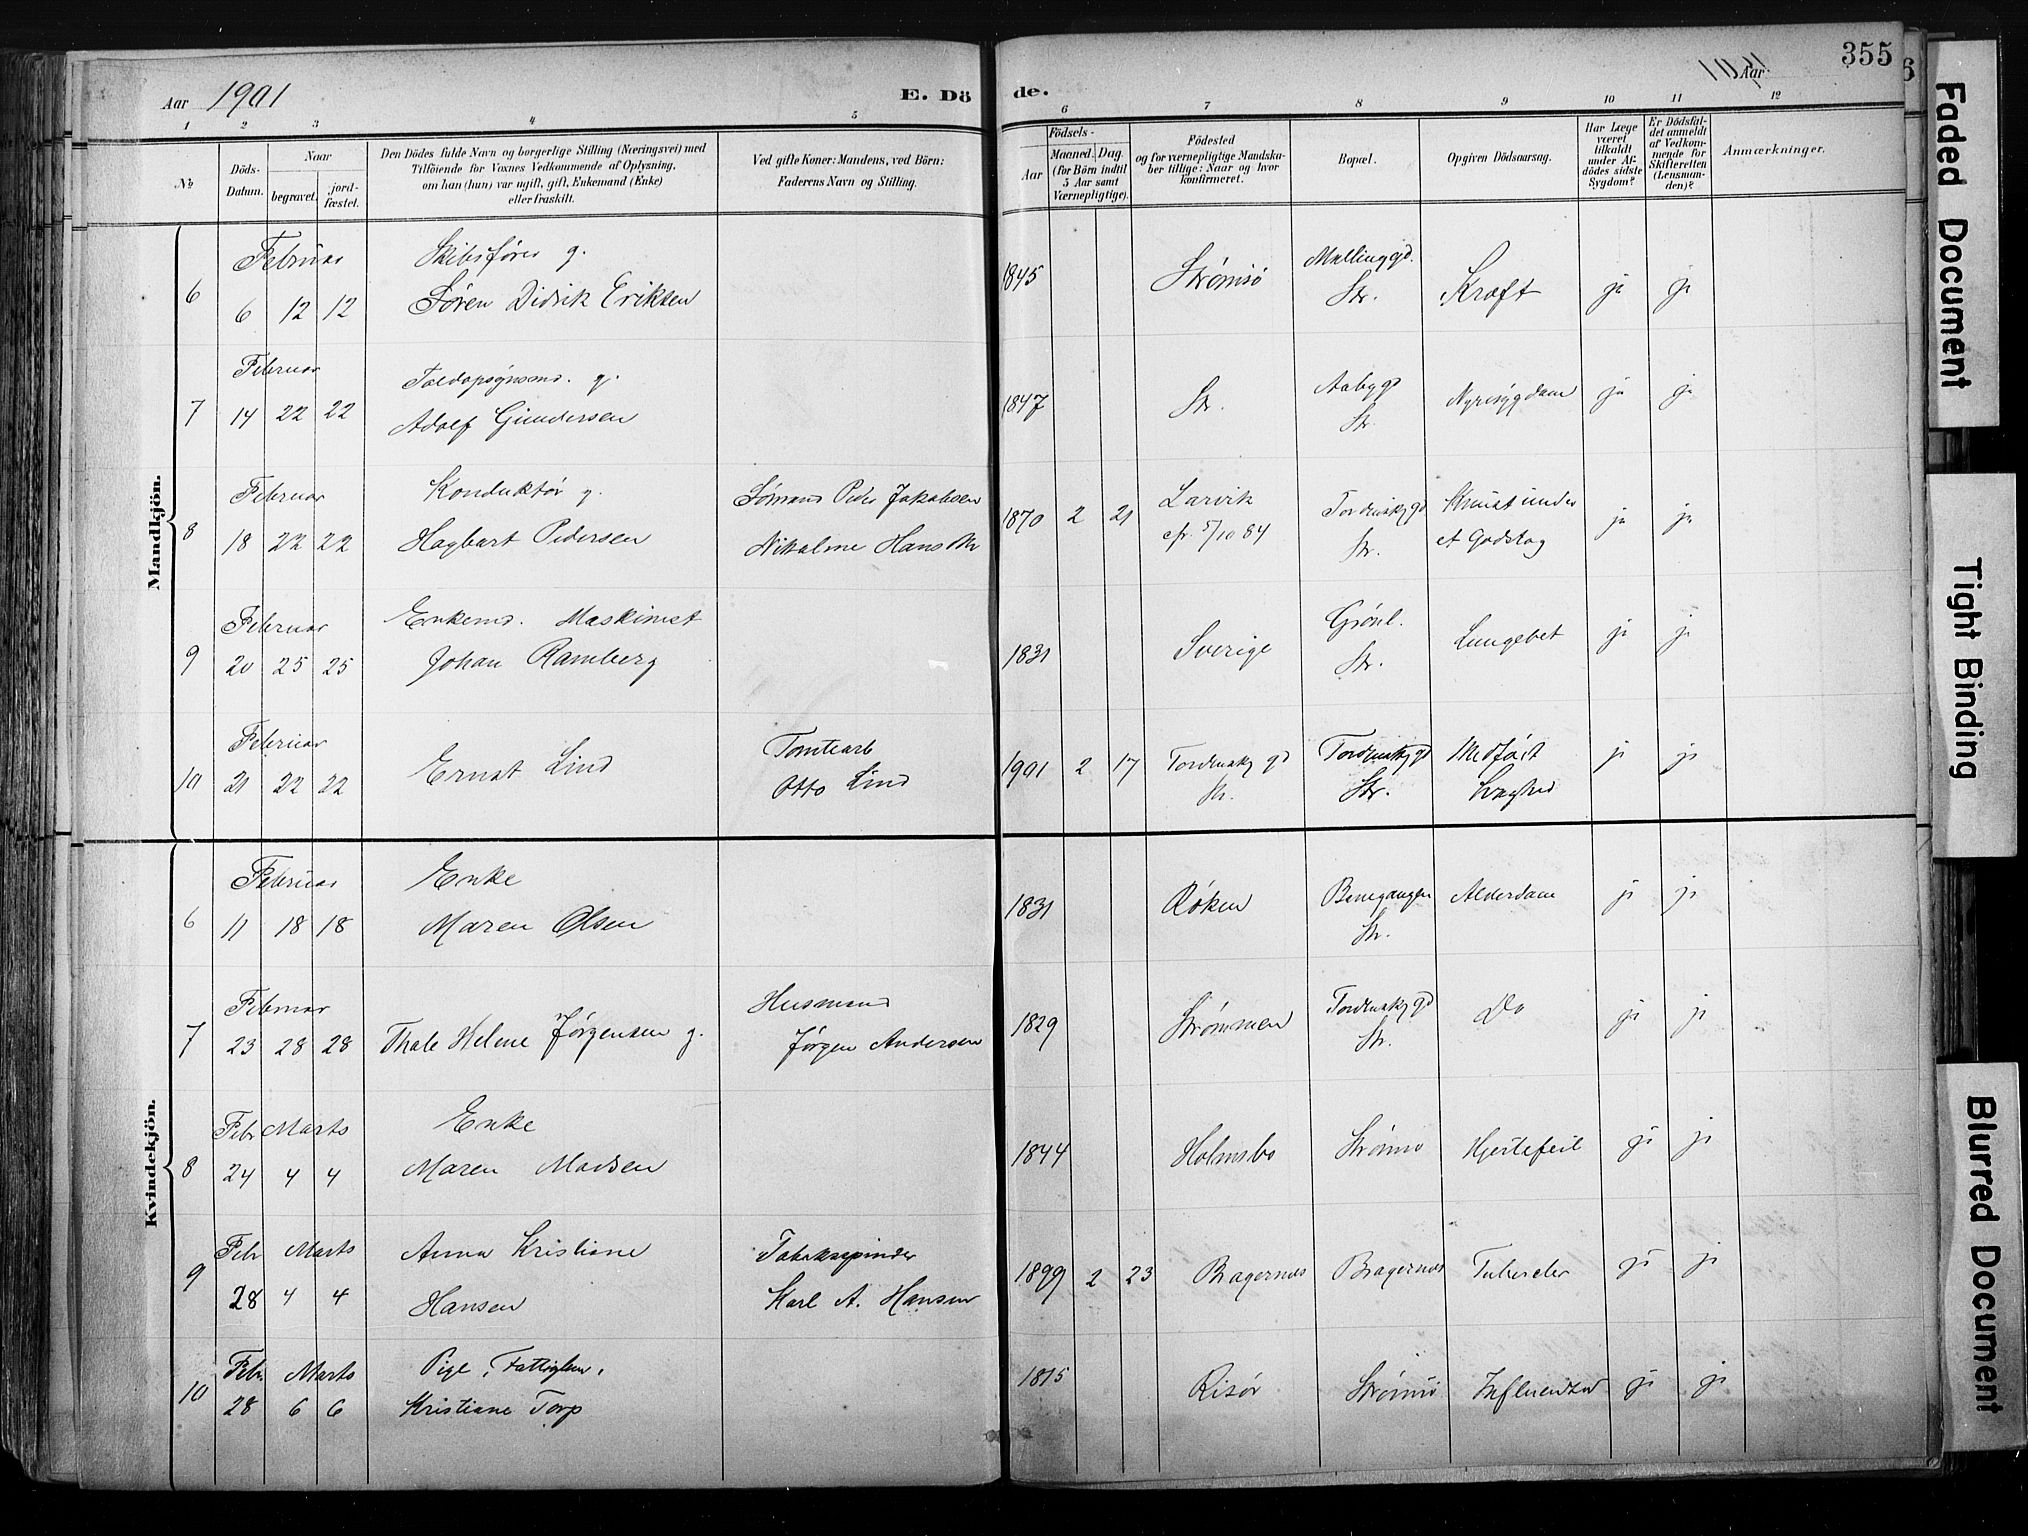 355
Aar 1901
E. Dö de.
Aar 1901
1 2 3 4 5 6 7 8 9 10 11 12
№
Döds-Datum.
Naar
begravet.
jord-fæstet.
Den Dödes fulde Navn og borgerlige Stilling (Næringsvei) med
Tilföiende for Voxnes Vedkommende af Oplysning,
om han (hun) var ugift, gift, Enkemand (Enke)
eller fraskilt.
Ved gifte Koner: Mandens, ved Börn:
Faderens Navn og Stilling.
Födsels-
Aar
Maaned. Dag.
(for Börn indtil
5 Aar samt
Værnepligtige).
Födested
og for værnepligtige Mandska-
ber tillige: Naar og hvor
konfirmeret.
Bopæl.
Opgiven Dödsaarsag.
Har Læge
været
tilkaldt
under Af-
dödes sidste
Sygdom?
Er Dödsfal-
det anmeldt
af Vedkom-
mende for
Skifteretten
(Lensman-
den)?
Anmærkninger.
Mandkjön.
Februar Skibsfører g.
6 6 12 12 Søren Didrik Eriksen 1845 Strømsö Mallinggd. Str. Kræft ja ja
Februar Toldopsynsmd. g.
7 14 22 22 Adolf Gundersen 1847 Str. Aabygd Str. Nyresygdom ja ja
Februar Konduktør g. Sømand Peder Jakobsen
8 18 22 22 Hagbart Pedersen Nikoline Hansdtr 1870 2 21 Larvik cfr. 5/10 84 Tordenskjgd Str. Knust under et Godstog ja ja
Februar Enkemd. Maskinist
9 20 25 25 Johan Ramberg 1831 Sverige Grönl. Str. Lungebet ja ja
Februar Tomtearb
10 21 22 22 Ernst Lind Otto Lind 1901 2 17 Tordenskj gd Str. Tordenskjgd Str. Medfødt Svaghed ja ja
Kvindekjön.
Februar Enke
6 11 18 18 Maren Olsen 1831 Røken Str. Alderdom ja ja
Februar Husmand
7 23 28 28 Thale Helene Jørgensen g. Jørgen Andersen 1829 Strømmen Tordenskjgd Str. Do ja ja
Febr Marts Enke
8 24 4 4 Maren Madsen 1844 Holmsbo Strømsø Hjertefeil ja ja
Febr Marts Anna Kristiane Tobakspinder
9 28 4 4 Hansen Karl A. Hansen 1899 2 23 Bragernæs Bragernæs Tuberkler ja ja
Febr. Marts Pige, Fattiglem,
10 28 6 6 Kristiane Torp 1815 Risør Strømsö Influentsa ja ja
Faded Document
Tight Binding
Blurred Document